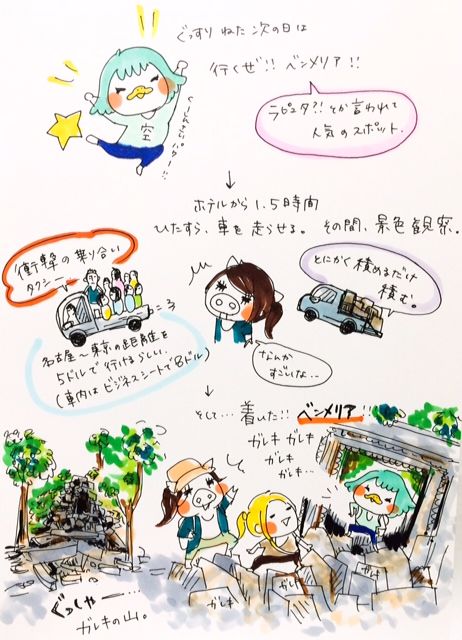 ぐっすり ねた 次の日は
行くぜ!! ベンメリア!!
空
ラピュタ?! とか 言われて
人気のスポット.
↓
ホテルから 1.5時間
ひたすら、車を走らせる。 その間、景色観察。
衝撃の乗り合い
タクシー
とにかく 積めるだけ
積む。
名古屋〜東京の距離を
5ドルで行けるらしい
(車内はビジネスシートで8ドル)
なんか
すごいな...
↓
そして… 着いた!! ベンメリア!!
ガレキ ガレキ
ガレキ
ガレキ…
ぐっしゃー…
ガレキの山。
ガレキ
ガレキ
ガレキ